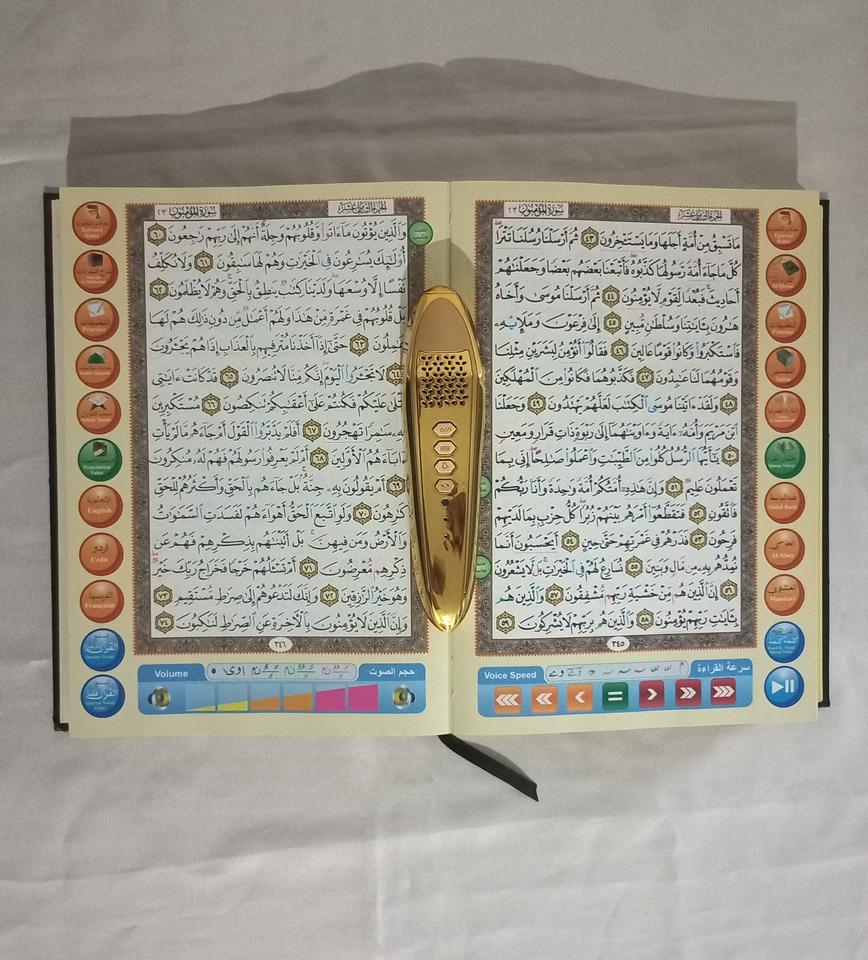 سُورَةُ المُؤْمِنُونَ ٢٣
الجُزْءُ الثَّامِنَ عَشَرَ
مَا تَسْبِقُ مِنْ أُمَّةٍ أَجَلَهَا وَمَا يَسْتَـْٔخِرُونَ ٤٣ ثُمَّ أَرْسَلْنَا رُسُلَنَا تَتْرَا
كُلَّ مَا جَآءَ أُمَّةً رَّسُولُهَا كَذَّبُوهُ فَأَتْبَعْنَا بَعْضَهُم بَعْضًا وَجَعَلْنَٰهُمْ
أَحَادِيثَ فَبُعْدًا لِّقَوْمٍ لَّا يُؤْمِنُونَ ٤٤ ثُمَّ أَرْسَلْنَا مُوسَىٰ وَأَخَاهُ
هَٰرُونَ بِـَٔايَٰتِنَا وَسُلْطَٰنٍ مُّبِينٍ ٤٥ إِلَىٰ فِرْعَوْنَ وَمَلَإِيْهِۦ
فَٱسْتَكْبَرُوا۟ وَكَانُوا۟ قَوْمًا عَالِينَ ٤٦ فَقَالُوٓا۟ أَنُؤْمِنُ لِبَشَرَيْنِ مِثْلِنَا
وَقَوْمُهُمَا لَنَا عَٰبِدُونَ ٤٧ فَكَذَّبُوهُمَا فَكَانُوا۟ مِنَ ٱلْمُهْلَكِينَ
٤٨ وَلَقَدْ ءَاتَيْنَا مُوسَى ٱلْكِتَٰبَ لَعَلَّهُمْ يَهْتَدُونَ ٤٩ وَجَعَلْنَا
ٱبْنَ مَرْيَمَ وَأُمَّهُۥٓ ءَايَةً وَءَاوَيْنَٰهُمَآ إِلَىٰ رَبْوَةٍ ذَاتِ قَرَارٍ وَمَعِينٍ
٥٠ يَٰٓأَيُّهَا ٱلرُّسُلُ كُلُوا۟ مِنَ ٱلطَّيِّبَٰتِ وَٱعْمَلُوا۟ صَٰلِحًا إِنِّى بِمَا
تَعْمَلُونَ عَلِيمٌ ٥١ وَإِنَّ هَٰذِهِۦٓ أُمَّتُكُمْ أُمَّةً وَٰحِدَةً وَأَنَا۠ رَبُّكُمْ
فَٱتَّقُونِ ٥٢ فَتَقَطَّعُوٓا۟ أَمْرَهُم بَيْنَهُمْ زُبُرًا كُلُّ حِزْبٍۭ بِمَا لَدَيْهِمْ
فَرِحُونَ ٥٣ فَذَرْهُمْ فِى غَمْرَتِهِمْ حَتَّىٰ حِينٍ ٥٤ أَيَحْسَبُونَ أَنَّمَا
نُمِدُّهُم بِهِۦ مِن مَّالٍ وَبَنِينَ ٥٥ نُسَارِعُ لَهُمْ فِى ٱلْخَيْرَٰتِ بَل لَّا يَشْعُرُونَ
٥٦ إِنَّ ٱلَّذِينَ هُم مِّنْ خَشْيَةِ رَبِّهِم مُّشْفِقُونَ ٥٧ وَٱلَّذِينَ هُم
بِـَٔايَٰتِ رَبِّهِمْ يُؤْمِنُونَ ٥٨ وَٱلَّذِينَ هُم بِرَبِّهِمْ لَا يُشْرِكُونَ ٥٩
٣٤٥
Voice Speed
سرعة القراءة
Tajweed Rules
Practice
Quran Voice
Abdul Basit
Al-Afasy
المنشاوي
سُورَةُ المُؤْمِنُونَ ٢٣
الجُزْءُ الثَّامِنَ عَشَرَ
وَٱلَّذِينَ يُؤْتُونَ مَآ ءَاتَوا۟ وَّقُلُوبُهُمْ وَجِلَةٌ أَنَّهُمْ إِلَىٰ رَبِّهِمْ رَٰجِعُونَ ٦٠
أُو۟لَٰٓئِكَ يُسَٰرِعُونَ فِى ٱلْخَيْرَٰتِ وَهُمْ لَهَا سَٰبِقُونَ ٦١ وَلَا نُكَلِّفُ
نَفْسًا إِلَّا وُسْعَهَا وَلَدَيْنَا كِتَٰبٌ يَنطِقُ بِٱلْحَقِّ وَهُمْ لَا يُظْلَمُونَ ٦٢
بَلْ قُلُوبُهُمْ فِى غَمْرَةٍ مِّنْ هَٰذَا وَلَهُمْ أَعْمَٰلٌ مِّن دُونِ ذَٰلِكَ هُمْ لَهَا
عَٰمِلُونَ ٦٣ حَتَّىٰٓ إِذَآ أَخَذْنَا مُتْرَفِيهِم بِٱلْعَذَابِ إِذَا هُمْ يَجْـَٔرُونَ
٦٤ لَا تَجْـَٔرُوا۟ ٱلْيَوْمَ إِنَّكُم مِّنَّا لَا تُنصَرُونَ ٦٥ قَدْ كَانَتْ ءَايَٰتِى
تُتْلَىٰ عَلَيْكُمْ فَكُنتُمْ عَلَىٰٓ أَعْقَٰبِكُمْ تَنكِصُونَ ٦٦ مُسْتَكْبِرِينَ
بِهِۦ سَٰمِرًا تَهْجُرُونَ ٦٧ أَفَلَمْ يَدَّبَّرُوا۟ ٱلْقَوْلَ أَمْ جَآءَهُم مَّا لَمْ يَأْتِ
ءَابَآءَهُمُ ٱلْأَوَّلِينَ ٦٨ أَمْ لَمْ يَعْرِفُوا۟ رَسُولَهُمْ فَهُمْ لَهُۥ مُنكِرُونَ
٦٩ أَمْ يَقُولُونَ بِهِۦ جِنَّةٌۢ بَلْ جَآءَهُم بِٱلْحَقِّ وَأَكْثَرُهُمْ لِلْحَقِّ
كَٰرِهُونَ ٧٠ وَلَوِ ٱتَّبَعَ ٱلْحَقُّ أَهْوَآءَهُمْ لَفَسَدَتِ ٱلسَّمَٰوَٰتُ
وَٱلْأَرْضُ وَمَن فِيهِنَّ بَلْ أَتَيْنَٰهُم بِذِكْرِهِمْ فَهُمْ عَن
ذِكْرِهِم مُّعْرِضُونَ ٧١ أَمْ تَسْـَٔلُهُمْ خَرْجًا فَخَرَاجُ رَبِّكَ خَيْرٌ
وَهُوَ خَيْرُ ٱلرَّٰزِقِينَ ٧٢ وَإِنَّكَ لَتَدْعُوهُمْ إِلَىٰ صِرَٰطٍ مُّسْتَقِيمٍ ٧٣
وَإِنَّ ٱلَّذِينَ لَا يُؤْمِنُونَ بِٱلْـَٔاخِرَةِ عَنِ ٱلصِّرَٰطِ لَنَٰكِبُونَ ٧٤
٣٤٦
Volume
حجم الصوت
Tajweed Rules
Practice
Translation Voice
الإنجليزية
English
اردو
Urdu
الفرنسية
Française